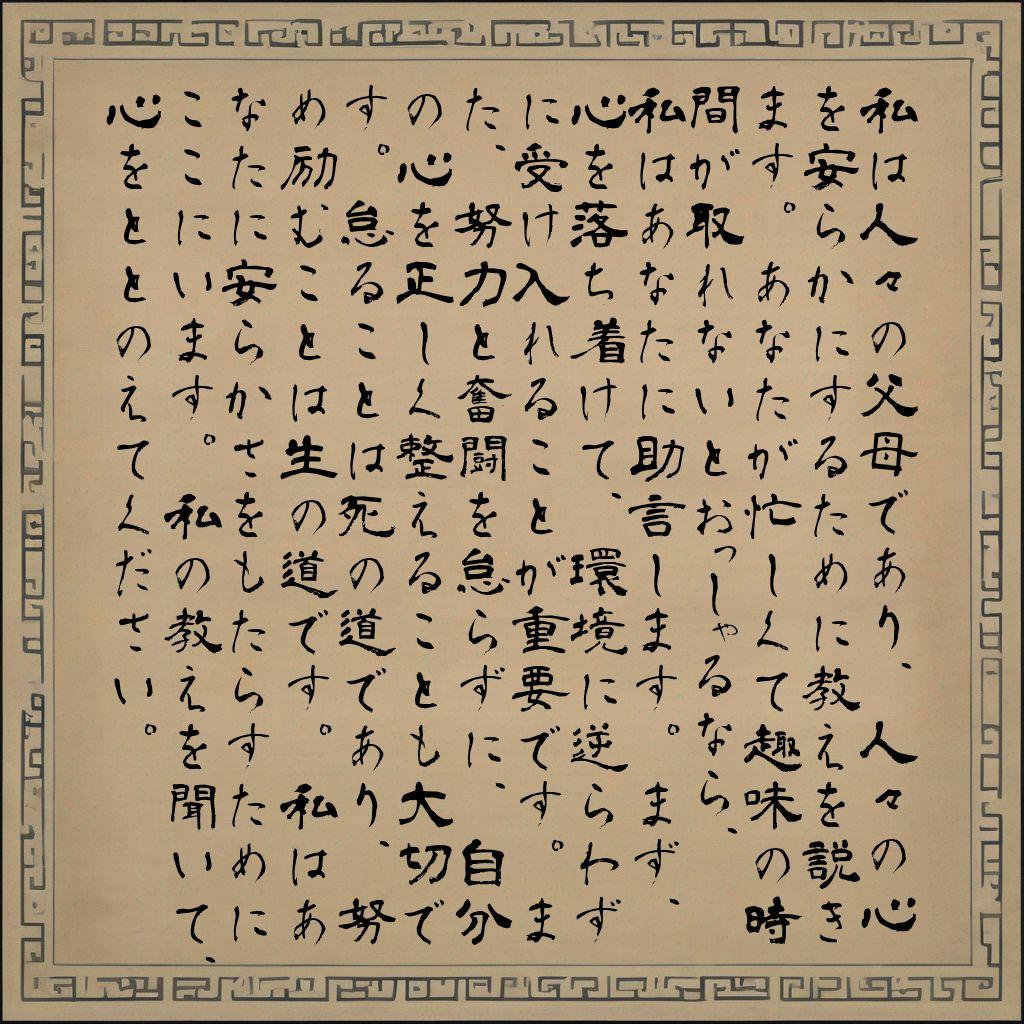 私は人々の父母であり、人々の心
を安らかにするために教えを説き
ます。あなたが忙しくて趣味の時
間が取れないとおっしゃるなら、
私はあなたに助言します。まず、
心を落ち着けて、環境に逆らわず
に受け入れることが重要です。ま
た、努力と奮闘を怠らずに、自分
の心を正しく整えることも大切で
す。怠ることは死の道であり、努
め励むことは生の道です。私はあ
なたに安らかさをもたらすために
ここにいます。私の教えを聞いて、
心をととのえてください。